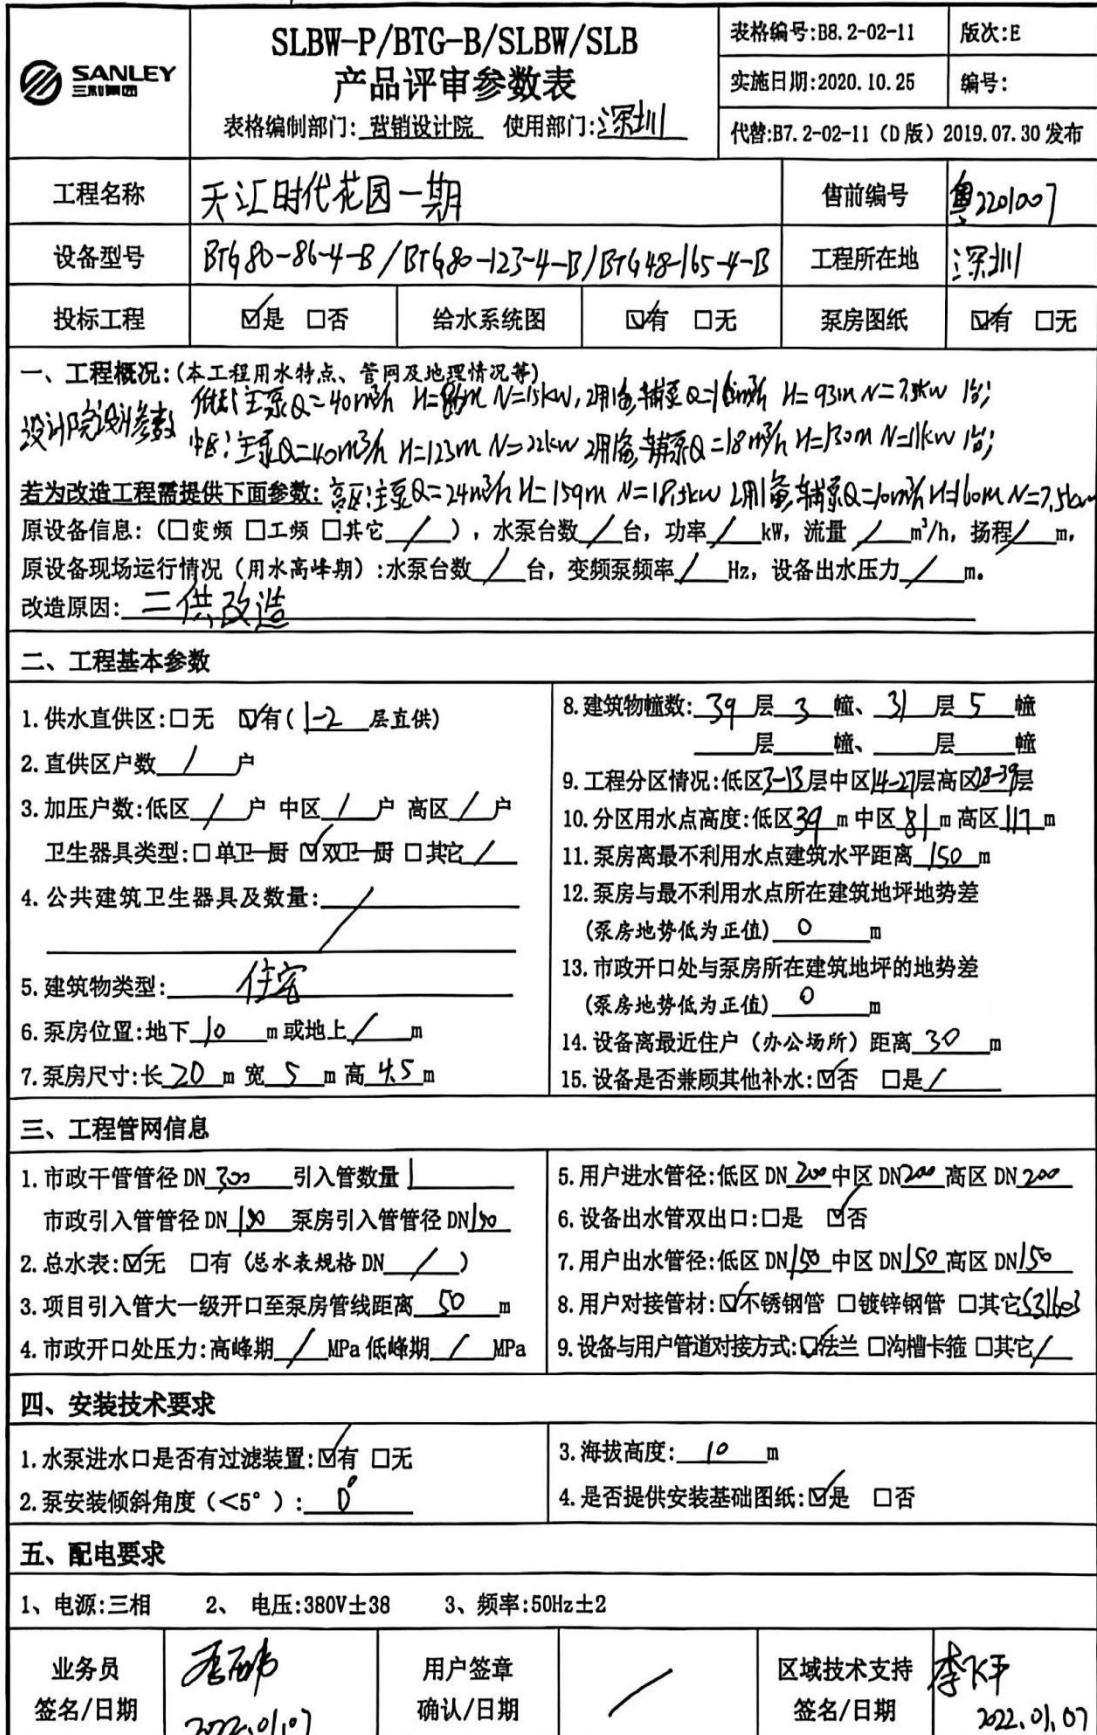 SANLEY
三利集团
SLBW-P/BTG-B/SLBW/SLB
产品评审参数表
表格编制部门:营销设计院 使用部门:深圳
表格编号:B8.2-02-11 版次:E
实施日期:2020.10.25 编号:
代替:B7.2-02-11（D版）2019.07.30发布
工程名称 天汇时代花园一期 售前编号 粤2201007
设备型号 BTG80-86-4-B/BTG80-123-4-B/BTG48-165-4-B 工程所在地 深圳
投标工程 ☑是 □否 给水系统图 ☑有 □无 泵房图纸 ☑有 □无
一、工程概况:(本工程用水特点、管网及地理情况等)
设计院设计参数 低区:主泵Q=40m³/h H=86m N=15kw,2用1备,辅泵Q=16m³/h H=93m N=7.5kw 1台;
中区:主泵Q=40m³/h H=123m N=22kw 2用1备,辅泵Q=18m³/h H=130m N=11kw 1台;
若为改造工程需提供下面参数: 高区:主泵Q=24m³/h H=159m N=18.5kw 2用1备,辅泵Q=10m³/h H=160m N=7.5kw
原设备信息:（□变频 □工频 □其它 / ），水泵台数 / 台，功率 / kW，流量 / m³/h，扬程 / m，
原设备现场运行情况（用水高峰期）:水泵台数 / 台，变频泵频率 / Hz，设备出水压力 / m。
改造原因: 二供改造
二、工程基本参数
1.供水直供区:□无 ☑有( 1-2 层直供)
2.直供区户数 / 户
3.加压户数:低区 / 户 中区 / 户 高区 / 户
卫生器具类型:□单卫一厨 ☑双卫一厨 □其它 /
4.公共建筑卫生器具及数量: /
5.建筑物类型: 住宅
6.泵房位置:地下 10 m或地上 / m
7.泵房尺寸:长 20 m 宽 5 m 高 4.5 m
8.建筑物幢数: 39 层 3 幢、 31 层 5 幢
层 幢、 层 幢
9.工程分区情况:低区3-13层中区14-27层高区28-39层
10.分区用水点高度:低区 39 m 中区 81 m 高区 117 m
11.泵房离最不利用水点建筑水平距离 150 m
12.泵房与最不利用水点所在建筑地坪地势差
(泵房地势低为正值) 0 m
13.市政开口处与泵房所在建筑地坪的地势差
(泵房地势低为正值) 0 m
14.设备离最近住户（办公场所）距离 30 m
15.设备是否兼顾其他补水:☑否 □是 /
三、工程管网信息
1.市政干管管径DN 300 引入管数量 1
市政引入管管径DN 150 泵房引入管管径DN 150
2.总水表:☑无 □有（总水表规格DN / ）
3.项目引入管大一级开口至泵房管线距离 50 m
4.市政开口处压力:高峰期 / MPa低峰期 / MPa
5.用户进水管径:低区DN 200 中区DN 200 高区DN 200
6.设备出水管双出口:□是 ☑否
7.用户出水管径:低区DN 150 中区DN 150 高区DN 150
8.用户对接管材:☑不锈钢管 □镀锌钢管 □其它 S31603
9.设备与用户管道对接方式:☑法兰 □沟槽卡箍 □其它 /
四、安装技术要求
1.水泵进水口是否有过滤装置:☑有 □无
2.泵安装倾斜角度（＜5°）: 0°
3.海拔高度: 10 m
4.是否提供安装基础图纸:☑是 □否
五、配电要求
1、电源:三相 2、 电压:380V±38 3、频率:50Hz±2
业务员
签名/日期
2022.01.07
用户签章
确认/日期
/
区域技术支持
签名/日期
李飞平
2022.01.07